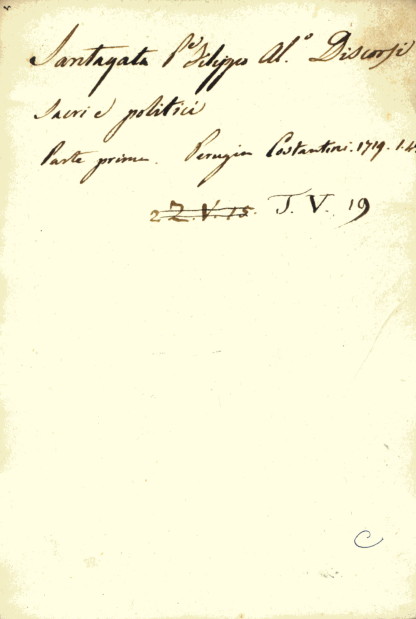 Santagata P.e Filippo Al.o Discorsi
Sacri e politici
Parte prima. Perugia Costantini. 1719. 1.4
2 Z.V.15. T.V. 19
C